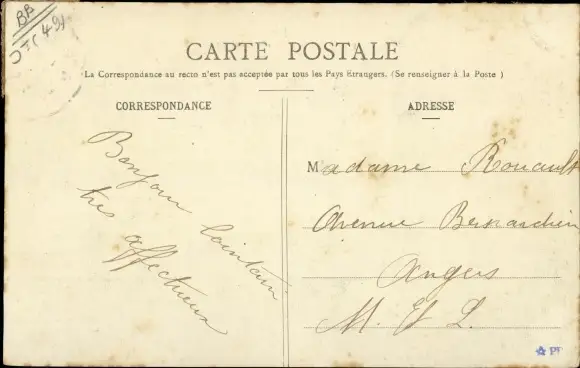 BB
CARTE POSTALE
La Correspondance au recto n'est pas acceptée par tous les Pays Etrangers. (Se renseigner à la Poste )
CORRESPONDANCE
Bonjour lointain
très affectueux
ADRESSE
Madame Rouault
Avenue
Angers
M. et L.
PF